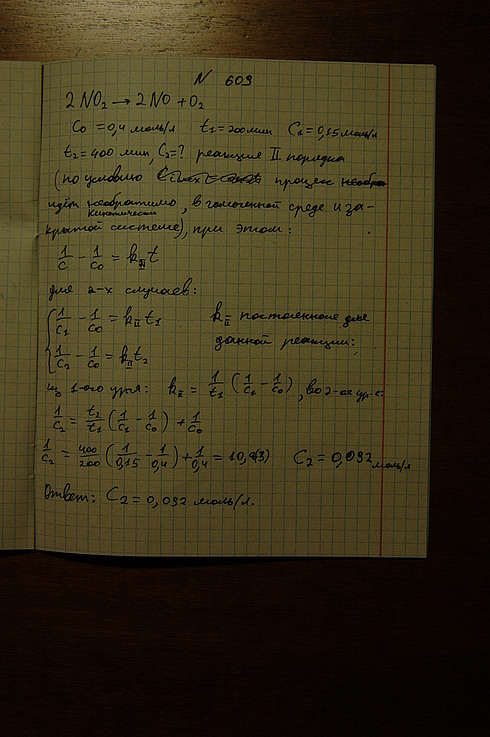 N 609
2NO₂ → 2NO + O₂
C₀ = 0,4 моль/л t₁ = 200 мин C₁ = 0,15 моль/л
t₂ = 400 мин, C₂ = ? реакция II порядка
(по условию процесс
идёт кинетически необратимо, в гомогенной среде и за-
крытой системе), при этом:
1/C - 1/C₀ = k_II t
для 2-х случаев:
1/C₁ - 1/C₀ = k_II t₁ k_II постоянное для
1/C₂ - 1/C₀ = k_II t₂ данной реакции:
из 1-ого ур-я: k_II = 1/t₁ (1/C₁ - 1/C₀), во 2-ое ур-е:
1/C₂ = t₂/t₁ (1/C₁ - 1/C₀) + 1/C₀
1/C₂ = 400/200 (1/0,15 - 1/0,4) + 1/0,4 = 10,8(3) C₂ = 0,092 моль/л
Ответ: C₂ = 0,092 моль/л.